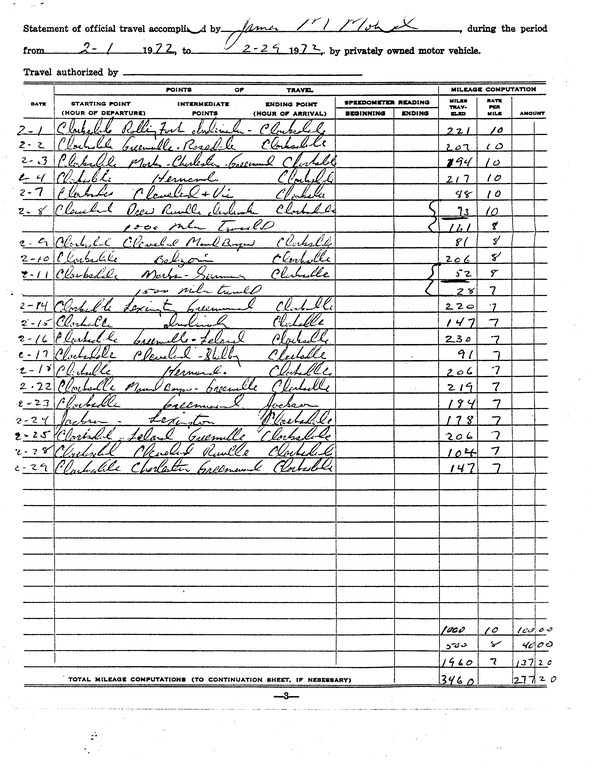 Statement of official travel accomplished by James M Mohead, during the period
from 2-1 1972, to 2-29 1972, by privately owned motor vehicle.
Travel authorized by
POINTS OF TRAVEL MILEAGE COMPUTATION
DATE STARTING POINT (HOUR OF DEPARTURE) INTERMEDIATE POINTS ENDING POINT (HOUR OF ARRIVAL) SPEEDOMETER READING BEGINNING ENDING MILES TRAV-ELED RATE PER MILE AMOUNT
2-1 Clarksdale Rolling Fork Indianola - Clarksdale 221 10
2-2 Clarksdale Greenville - Rosedale Clarksdale 207 10
2-3 Clarksdale Marks - Charleston - Greenwood Clarksdale 194 10
2-4 Clarksdale Hernando Clarksdale 217 10
2-7 Clarksdale Cleveland + Vic Clarksdale 48 10
2-8 Cleveland Ruleville Indianola Clarksdale 73 10
1000 miles Traveled 161 8
2-9 Clarksdale Cleveland Mound Bayou Clarksdale 81 8
2-10 Clarksdale Belzoni Clarksdale 206 8
2-11 Clarksdale Marks - Sumner Clarksdale 52 8
1500 miles traveled 28 7
2-14 Clarksdale Lexington Greenwood Clarksdale 220 7
2-15 Clarksdale Indianola Clarksdale 147 7
2-16 Clarksdale Greenville - Leland Clarksdale 230 7
2-17 Clarksdale Cleveland - Shelby Clarksdale 91 7
2-18 Clarksdale Hernando Clarksdale 206 7
2-22 Clarksdale Mound Bayou - Greenville Clarksdale 219 7
2-23 Clarksdale Greenwood Jackson 184 7
2-24 Jackson - Lexington Clarksdale 178 7
2-25 Clarksdale - Leland Greenville Clarksdale 206 7
2-28 Clarksdale Cleveland Ruleville Clarksdale 104 7
2-29 Clarksdale Charleston Greenwood Clarksdale 147 7
1000 10 100 00
500 8 40 00
1960 7 137 20
TOTAL MILEAGE COMPUTATIONS (TO CONTINUATION SHEET, IF NESESSARY) 3460 277 20
—3—